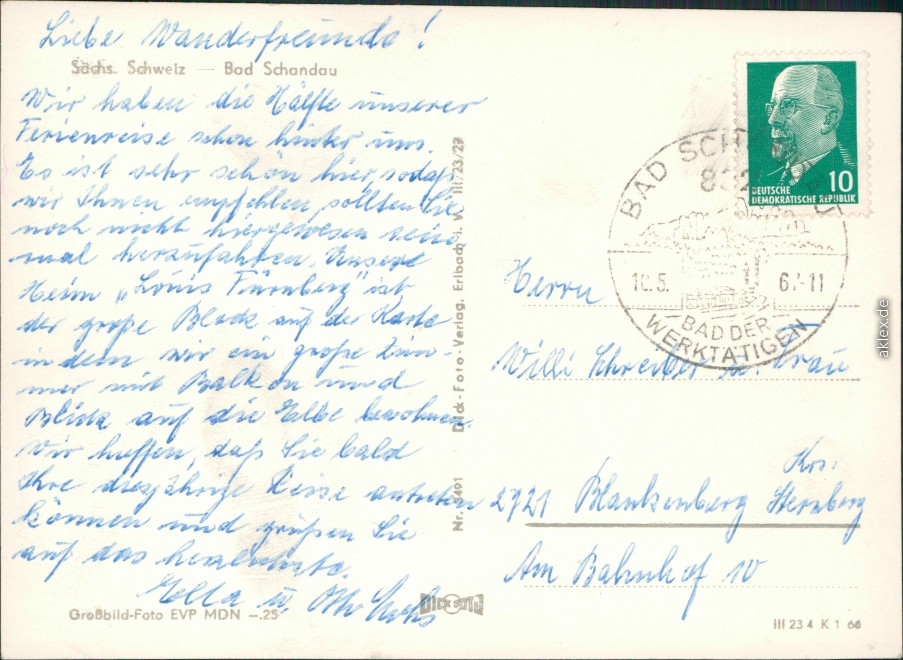 Liebe Wanderfreunde!
Sächs. Schweiz — Bad Schandau
Wir haben die Hälfte unserer
Ferienreise schon hinter uns.
Es ist sehr schön hier, sodaß
wir Ihnen empfehlen, sollten Sie
noch nicht hiergewesen sein
mal herzufahren. Unsere
Heim „Louis Fürnberg" ist
der große Block auf der Karte
in dem wir ein große Zim-
mer mit Balkon und
Blick auf die Elbe bewohnen.
Wir hoffen, daß Sie bald
Ihre diesjährige Reise antreten
können und grüßen Sie
auf das herzlichste.
Ella u. Otto
Großbild-Foto EVP MDN –.25
Dick-Foto-Verlag, Erlbach i. V. III/23/27
DEUTSCHE
DEMOKRATISCHE REPUBLIK
10
BAD
BAD DER
WERKTÄTIGEN
Herrn
Willi Schreiber u. Frau
2721 Blankenberg Krs. Sternberg
Am Bahnhof 10
III 23 4 K 1 66
aklex.de